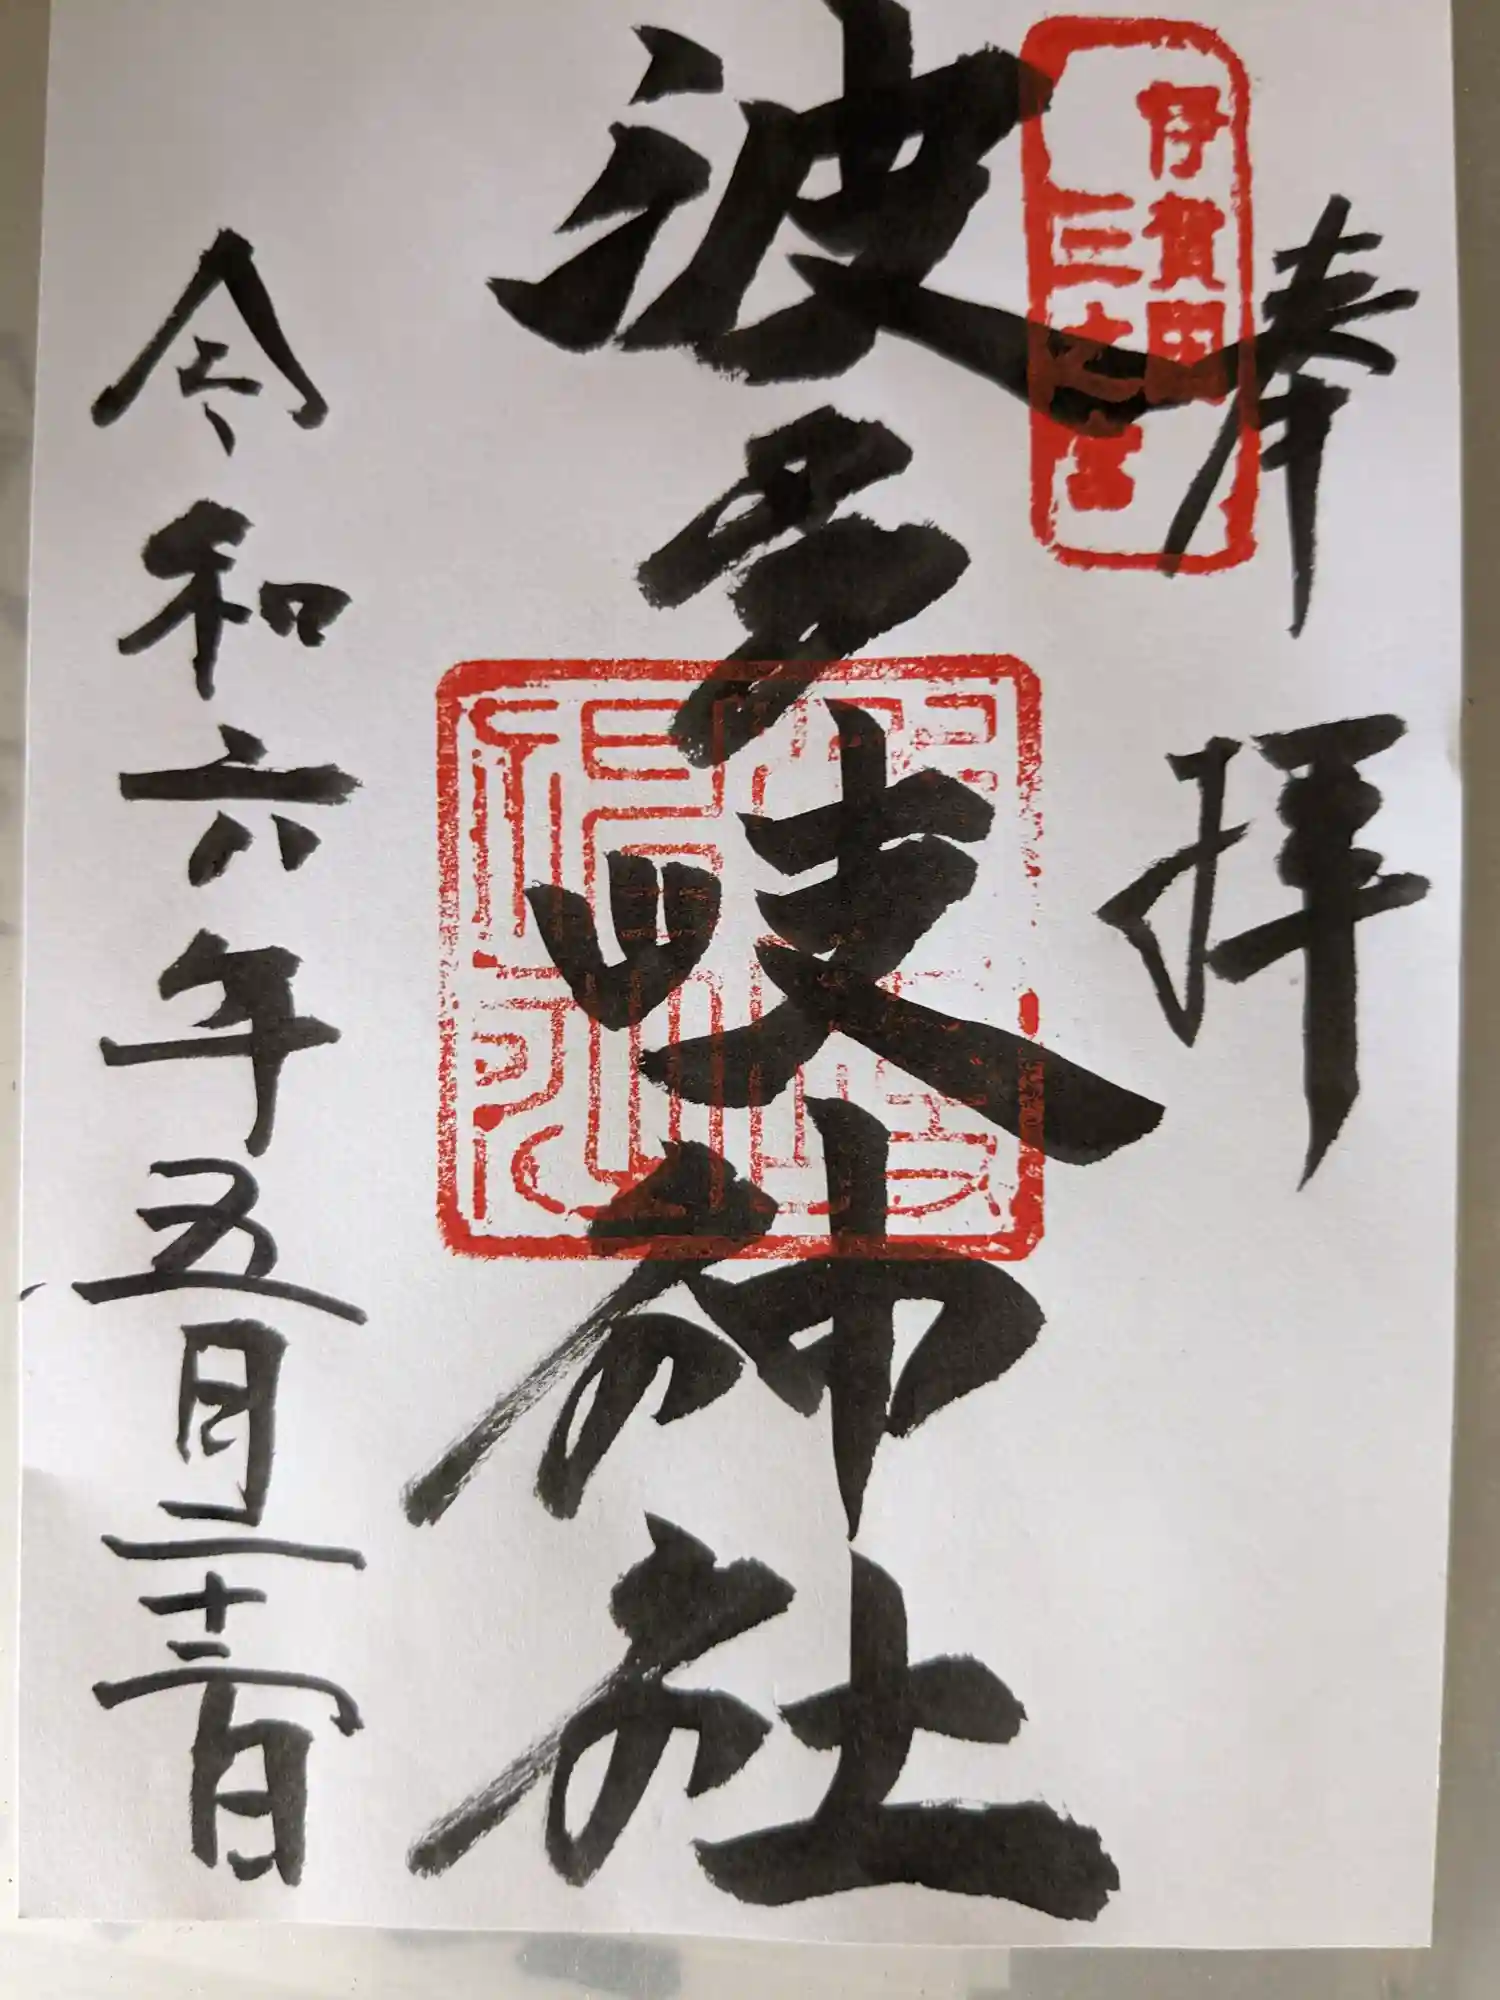 奉拝
伊賀国
三之宮
波多岐神社
令和六年五月二十三日